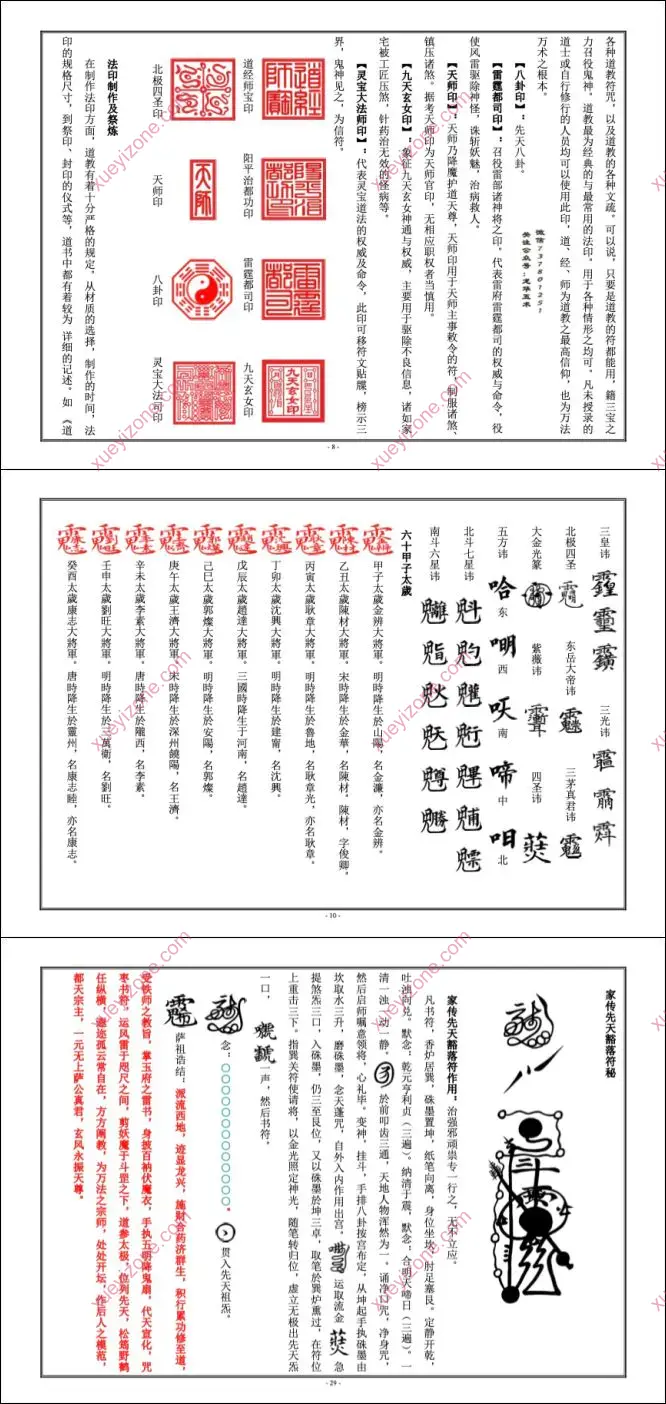 各种道教符咒，以及道教的各种文疏。可以说，只要是道教的符都能用，籍三宝之
力召役鬼神，道教最为经典的与最常用的法印。用于各种情形之均可。凡未授录的
道士或自行修行的人员均可以使用此印，道、经、师为道教之最高信仰，也为万法
万术之根本。
微信737801251
关注公众号：龙华五术
【八卦印】：先天八卦。
【雷霆都司印】：召役雷部诸神将之印。代表雷府雷霆都司的权威与命令，役
使风雷驱除神怪，诛斩妖魅，治病救人。
【天师印】：天师乃降魔护道天尊，天师印用于天师主事敕令的符，制服诸煞、
镇压诸煞。据考天师印为天师官印，无相应职权者当慎用。
【九天玄女印】：象征九天玄女神通与权威，主要用于驱除不良信息，诸如家
宅被工匠压煞，针药治无效的怪病等。
【灵宝大法师印】：代表灵宝道法的权威及命令，此印可移符文贴牒，榜示三
界，鬼神见之，为信符。
道经师宝印
阳平治都功印
雷霆都司印
九天玄女印
九天玄女印
北极四圣印
天师印
天师
八卦印
灵宝大法司印
法印制作及祭炼
在制作法印方面，道教有着十分严格的规定，从材质的选择，制作的时间，法
印的规格尺寸，到祭印、封印的仪式等，道书中都有着较为 详细的记述。如《道
- 8 -
三皇讳
三光讳
北极四圣
东岳大帝讳
三茅真君讳
大金光篆
紫薇讳
四圣讳
五方讳
东
西
南
中
北
北斗七星讳
南斗六星讳
六十甲子太歲
甲子太歲金辨大將軍。明時降生於山陽，名金濂，亦名金辨。
乙丑太歲陳材大將軍。宋時降生於金華，名陳材。陳材，字俊卿。
丙寅太歲耿章大將軍。明時降生於魯地，名耿章光，亦名耿章。
丁卯太歲沈興大將軍。明時降生於建甯，名沈興。
戊辰太歲趙達大將軍。三國時降生于河南，名趙達。
己巳太歲郭燦大將軍。明時降生於安陽，名郭燦。
庚午太歲王濟大將軍。宋時降生於深州饒陽，名王濟。
辛未太歲李素大將軍。唐時降生於隴西，名李素。
壬申太歲劉旺大將軍。明時降生於三萬衛，名劉旺。
癸酉太歲康志大將軍。唐時降生於靈州，名康志睦，亦名康志。
- 10 -
家传先天豁落符秘
家传先天豁落符作用：治强邪顽祟专一行之，无不立应。
凡书符，香炉居巽，硃墨置坤，纸笔向离，身位坐坎，肘足塞艮。定静开乾，
吐浊向兑。默念：乾元亨利贞（三遍）。纳清于震，默念：合明天啼日（三遍）。一
清一浊，动一静。
於前叩齿三通，天地人物浑然为一。诵净口咒，净身咒，
然后启师嘱意领将，心礼毕。变神，挂斗，手排八卦按宫布定，从坤起手执硃墨由
坎取水三升，磨硃墨，念天蓬咒，自外入内作用出宫，
运取流金
急
提煞炁三口，入硃墨，仍三至艮位，又以硃墨於坤三卓，取笔於巽炉熏过，在符位
上重击三下。指巽关符使请将，以金光照定神光，随笔转归位，虚立无极出先天炁
一口，
一声，然后书符，
念：○○○○○○○○○○○○○。
贯入先天祖炁。
萨祖诰结：派流西地，迹显龙兴，施财合药济群生，积行累功修至道，
受铁师之教旨，掌玉府之雷书，身披百衲伏魔衣，手执五明降鬼扇，代天宣化，咒
枣书符，运风雷于咫尺之间，剪妖魔于斗罡之下，道参太极，位列先天，松筠野鹤
任纵横，邈迩孤云常自在，方方阐教，为万法之宗师，处处开坛，作后人之模范，
都天宗主，一元无上萨公真君，玄风永振天尊。
- 29 -
xueyizone.com